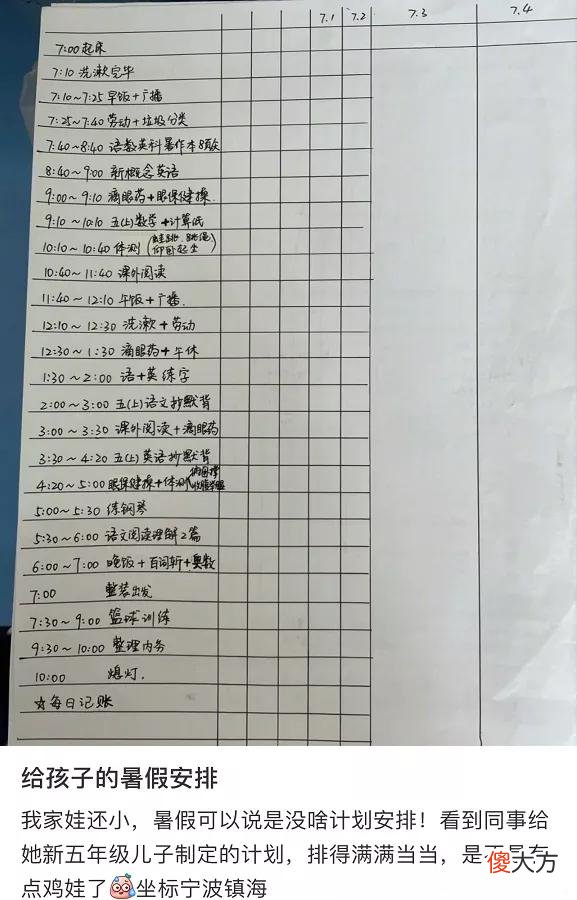 7.1 7.2 7.3 7.4
7:00 起床
7:10 洗漱完毕
7:10~7:25 早饭+广播
7:25~7:40 劳动+垃圾分类
7:40~8:40 语数英科暑作本8页
8:40~9:00 新概念英语
9:00~9:10 滴眼药+眼保健操
9:10~10:10 五(上)数学+计算纸
10:10~10:40 体测(蛙跳、跳绳 仰卧起坐)
10:40~11:40 课外阅读
11:40~12:10 午饭+广播.
12:10~12:30 洗漱+劳动
12:30~1:30 滴眼药+午休
1:30~2:00 语+英练字
2:00~3:00 五(上)语文抄默背
3:00~3:30 课外阅读+滴眼药
3:30~4:20 五(上)英语抄默背
4:20~5:00 眼保健操+体测
5:00~5:30 练钢琴
5:30~6:00 语文阅读理解2篇
6:00~7:00 晚饭+百词斩+奥数
7:00 整装出发
7:30~9:00 篮球训练
9:30~10:00 整理内务
10:00 熄灯.
☆每日记账
给孩子的暑假安排
我家娃还小，暑假可以说是没啥计划安排！看到同事给
她新五年级儿子制定的计划，排得满满当当，是不是有
点鸡娃了 坐标宁波镇海
傻大方